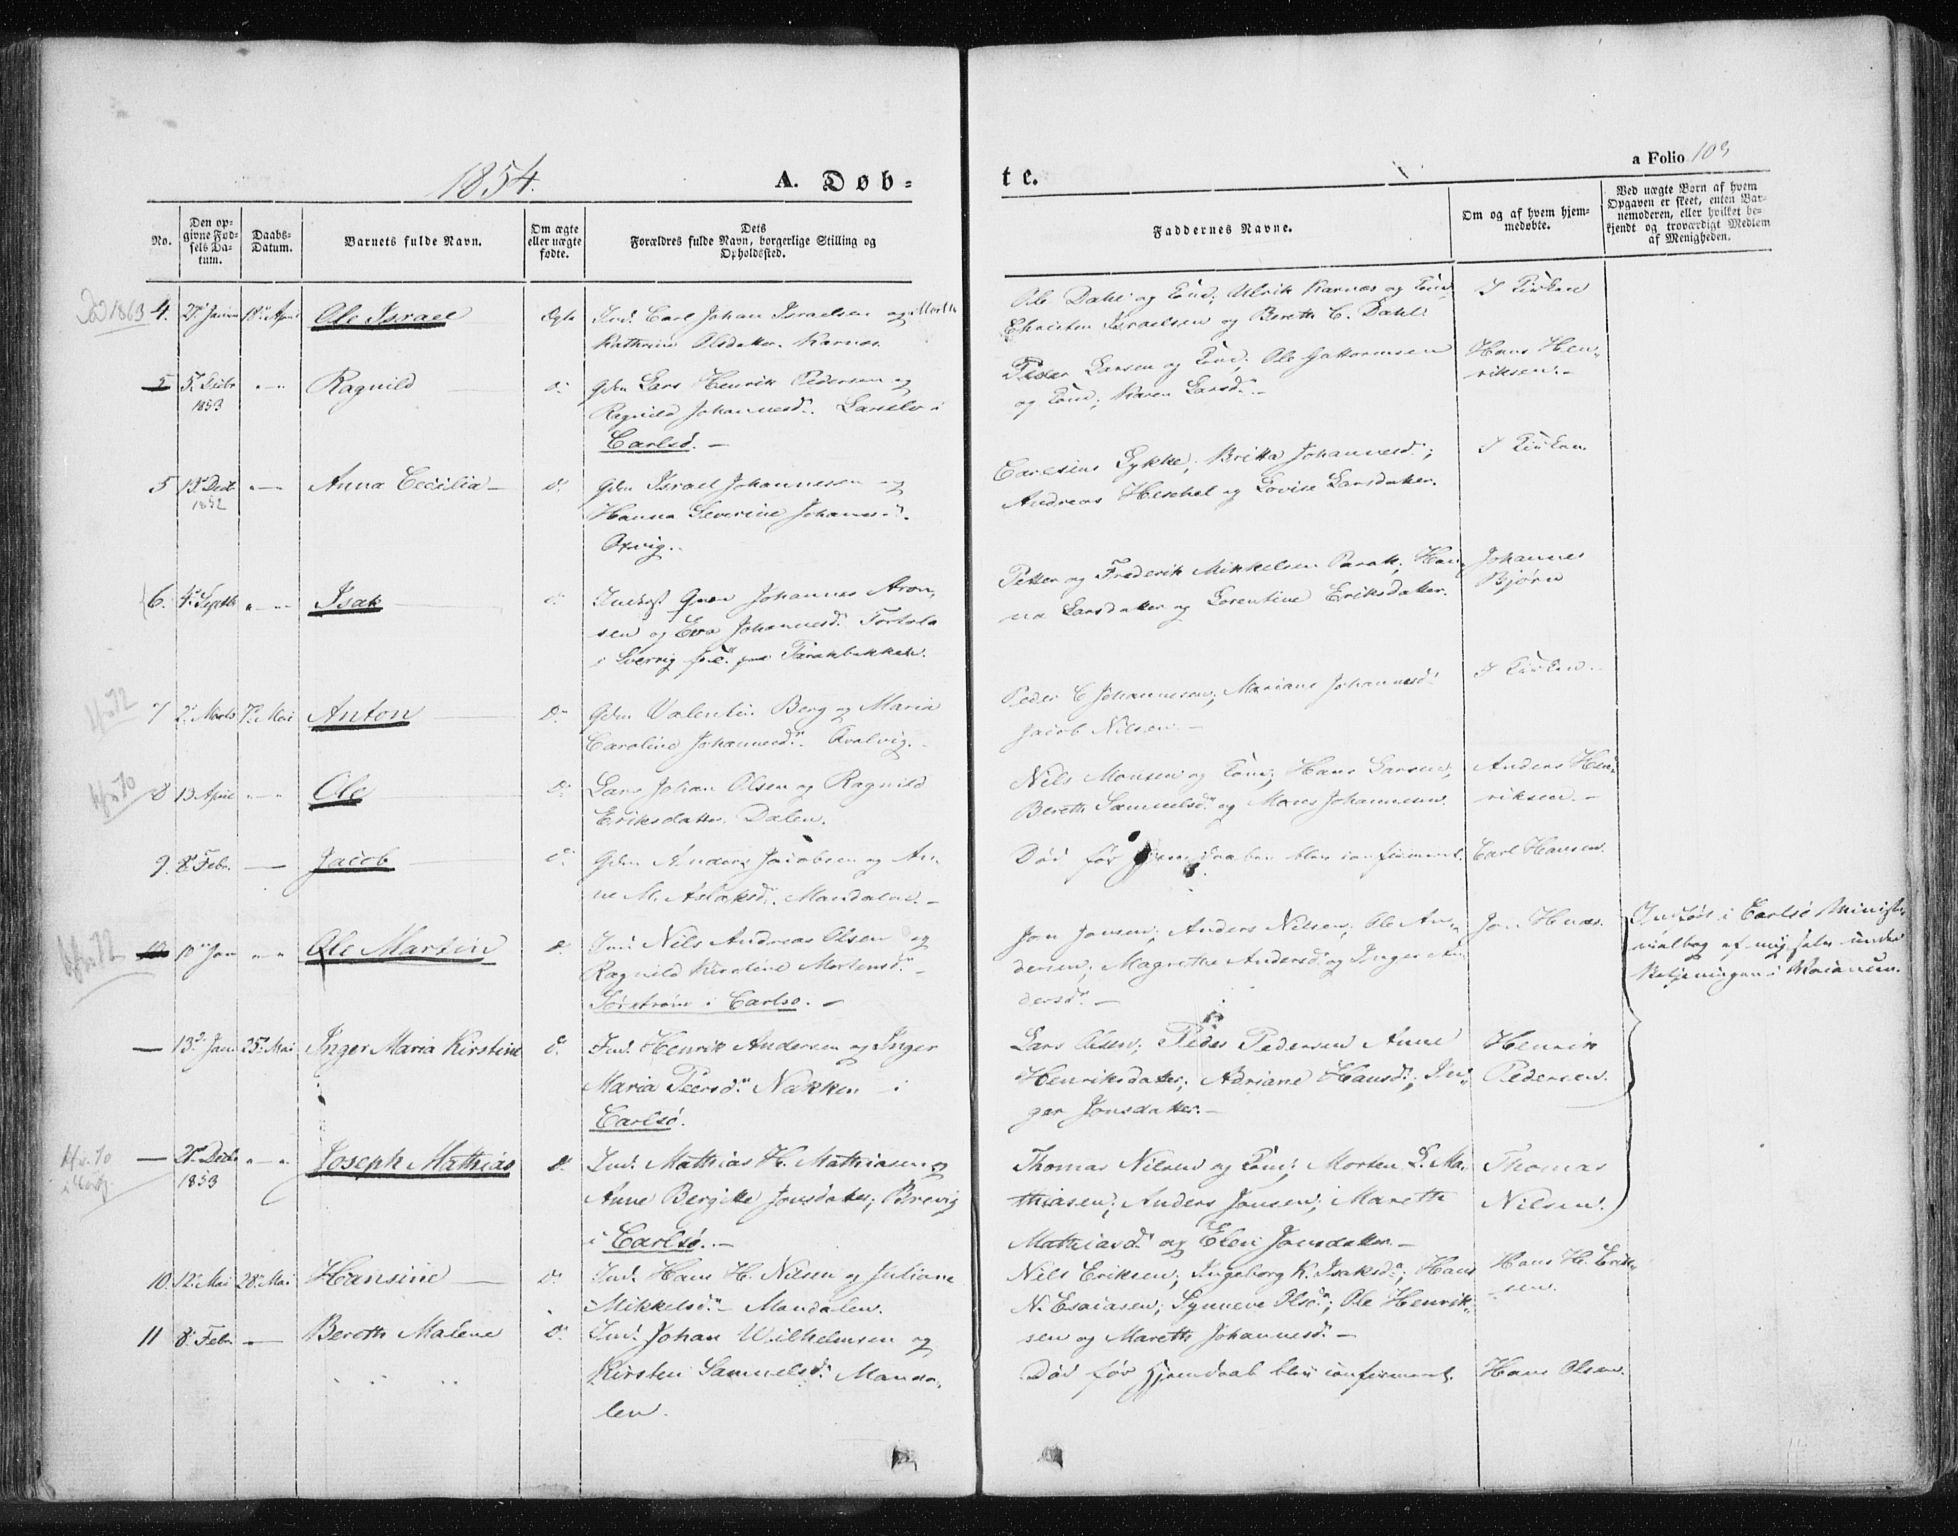 1854.
A. Døb-
te.
a Folio 109
No.
Den op-
givne Fød-
sels Da-
tum.
Daabs-
Datum.
Barnets fulde Navn.
Om ægte
eller uægte
fødte.
Dets
Forældres fulde Navn, borgerlige Stilling og
Opholdssted.
Faddernes Navne.
Om og af hvem hjem-
medøbte.
Ved uægte Børn af hvem
Opgaven er skeet, enten Bar-
nemoderen, eller hvilket be-
kjendt og troværdigt Medlem
af Menigheden.
Død 1863
4.
Ole Israel
Ægte
Ind. Carl Johan Israelsen og Marth
Kathrine Olsdatter. Karnæs.
Ole Dahl og Kone; Ulrik Karnæs og Kone
Christen Israelsen og Bereth C. Dahl.
I Kirken
5
5. Decbr
1853
Ragnild
d:
Gdm Lars Henrik Pedersen og
Ragnild Johannesd. Larselv i
Carlsö. -
Peder Larsen og Kone; Ole Guttormsen
og Kone; Karen Larsd. -
Hans Hen-
riksen. -
5
13 Decb
1852
Anna Cecilia -
d.
Gdm Israel Johannesen og
Hanna Severine Johannesd.
Oxvig.
Carelius Lykke; Britta Johannesd.;
Andreas Heschel og Lovise Larsdatter.
I Kirken.
6.
4. Septb
Isak
d.
Johannes Aron-
sen og Eva Johannesd. Tortola
Petter og Frederik Mikkelsen Parak; Han-
na Larsdatter og Lorentine Eriksdatter.
Johannes
Bjørn
7
2. Marts
7. Mai
Anton
D:
Gdm Valentin Berg og Maria
Caroline Johannesd. Kvalvig.
Peder C Johannesen; Mariane Johannesd.
Jacob Nilsen. -
I Kirken. -
8
13 April
Ole
D:
Lars Johan Olsen og Ragnild
Eriksdatter. Dalen.
Nils Monsen og Kone; Hans Larsen;
Bereth Samuelsd. og Mons Johannesen.
Anders Hen-
riksen. -
9.
8. Febr.
Jacob
d:
Gdm Anders Jacobsen og An-
ne M. Aslaksd. Mandalen. -
Død før Hjemdaaben blev confirmeret.
Carl Hansen.
10
10 Jan
Ole Martin
d.
Ind. Nils Andreas Olsen og
Ragnild Kirstine Mortensd. -
Sørstrøm i Carlsø. -
Jon Jonsen; Anders Nilsen; Ole An-
dersen; Magrethe Andersd. og Inger An-
dersd. -
Jon Hnæs.
Indført i Carlsö Ministe-
rialbog af mig selv under
-
13. Jan
25. Mai
Inger Maria Kirstine
d.
Ind. Henrik Andersen og Inger
Maria Peersd. Nakken i
Carlsø.
Lars Olsen; Peder Pedersen Anne
Henriksdatter; Adriane Hansd.; In-
ger Jonsdatter. -
Henrik
Pedersen.
-
21. Decbr
1853
Joseph Mathias
d.
Ind. Mathias H. Mathiasen og
Anne Bergitte Jonsdatter; Brevig
i Carlsø. -
Thomas Nilsen og Kone; Morten L. Ma-
thiasen; Anders Jonsen; Mareth
Mathiasd. og Elen Jonsdatter -
Thomas
Nilsen.
10.
12. Mai
28. Mai
Hansine
d.
Ind. Hans H. Nilsen og Juliane
Mikkelsd. - Mandalen.
Nils Eriksen; Ingeborg K. Isaksd.; Hans
N. Esaiasen; Synneve Olsd.; Ole Henrik-
sen og Mareth Johannesd. -
Hans H. Erik-
sen.
11
8. Febr.
Bereth Malene
d.
Ind. Johan Wilhelmsen og
Kirsten Samuelsd. Manda-
len.
Død før Hjemdaab blev confirmeret.
Hans Olsen.